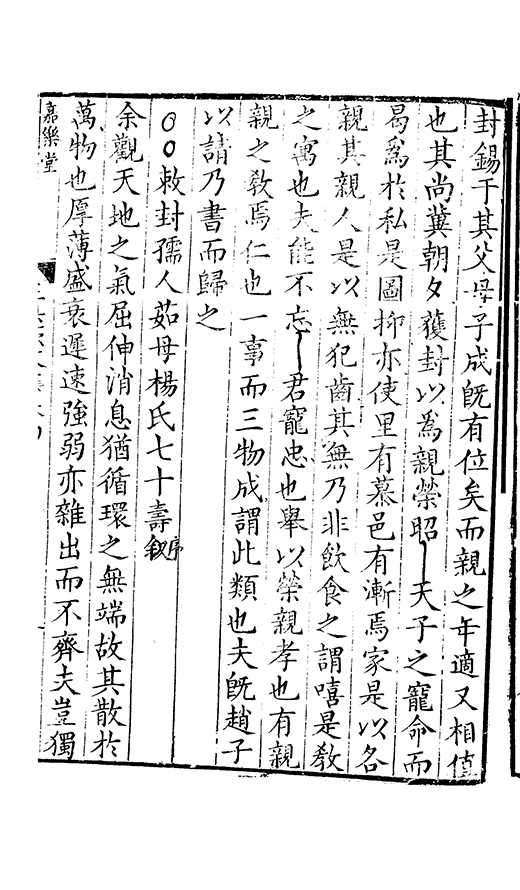 封錫于其父母子成旣有位矣而親之年適又相值
也其尚冀朝夕獲封以爲親榮昭天子之寵命而
曷爲於私是圖抑亦使里有慕邑有漸焉家是以各
親其親人是以無犯齒其無乃非飲食之謂嘻是教
之寓也夫能不忘君寵忠也舉以榮親孝也有親
親之教焉仁也一事而三物成謂此類也夫旣趙子
以請乃書而歸之
○○敕封孺人茹母楊氏七十壽敘序
余觀天地之氣屈伸消息猶循環之無端故其散於
萬物也厚薄盛衰遲速強弱亦雜出而不齊夫豈獨
嘉樂堂